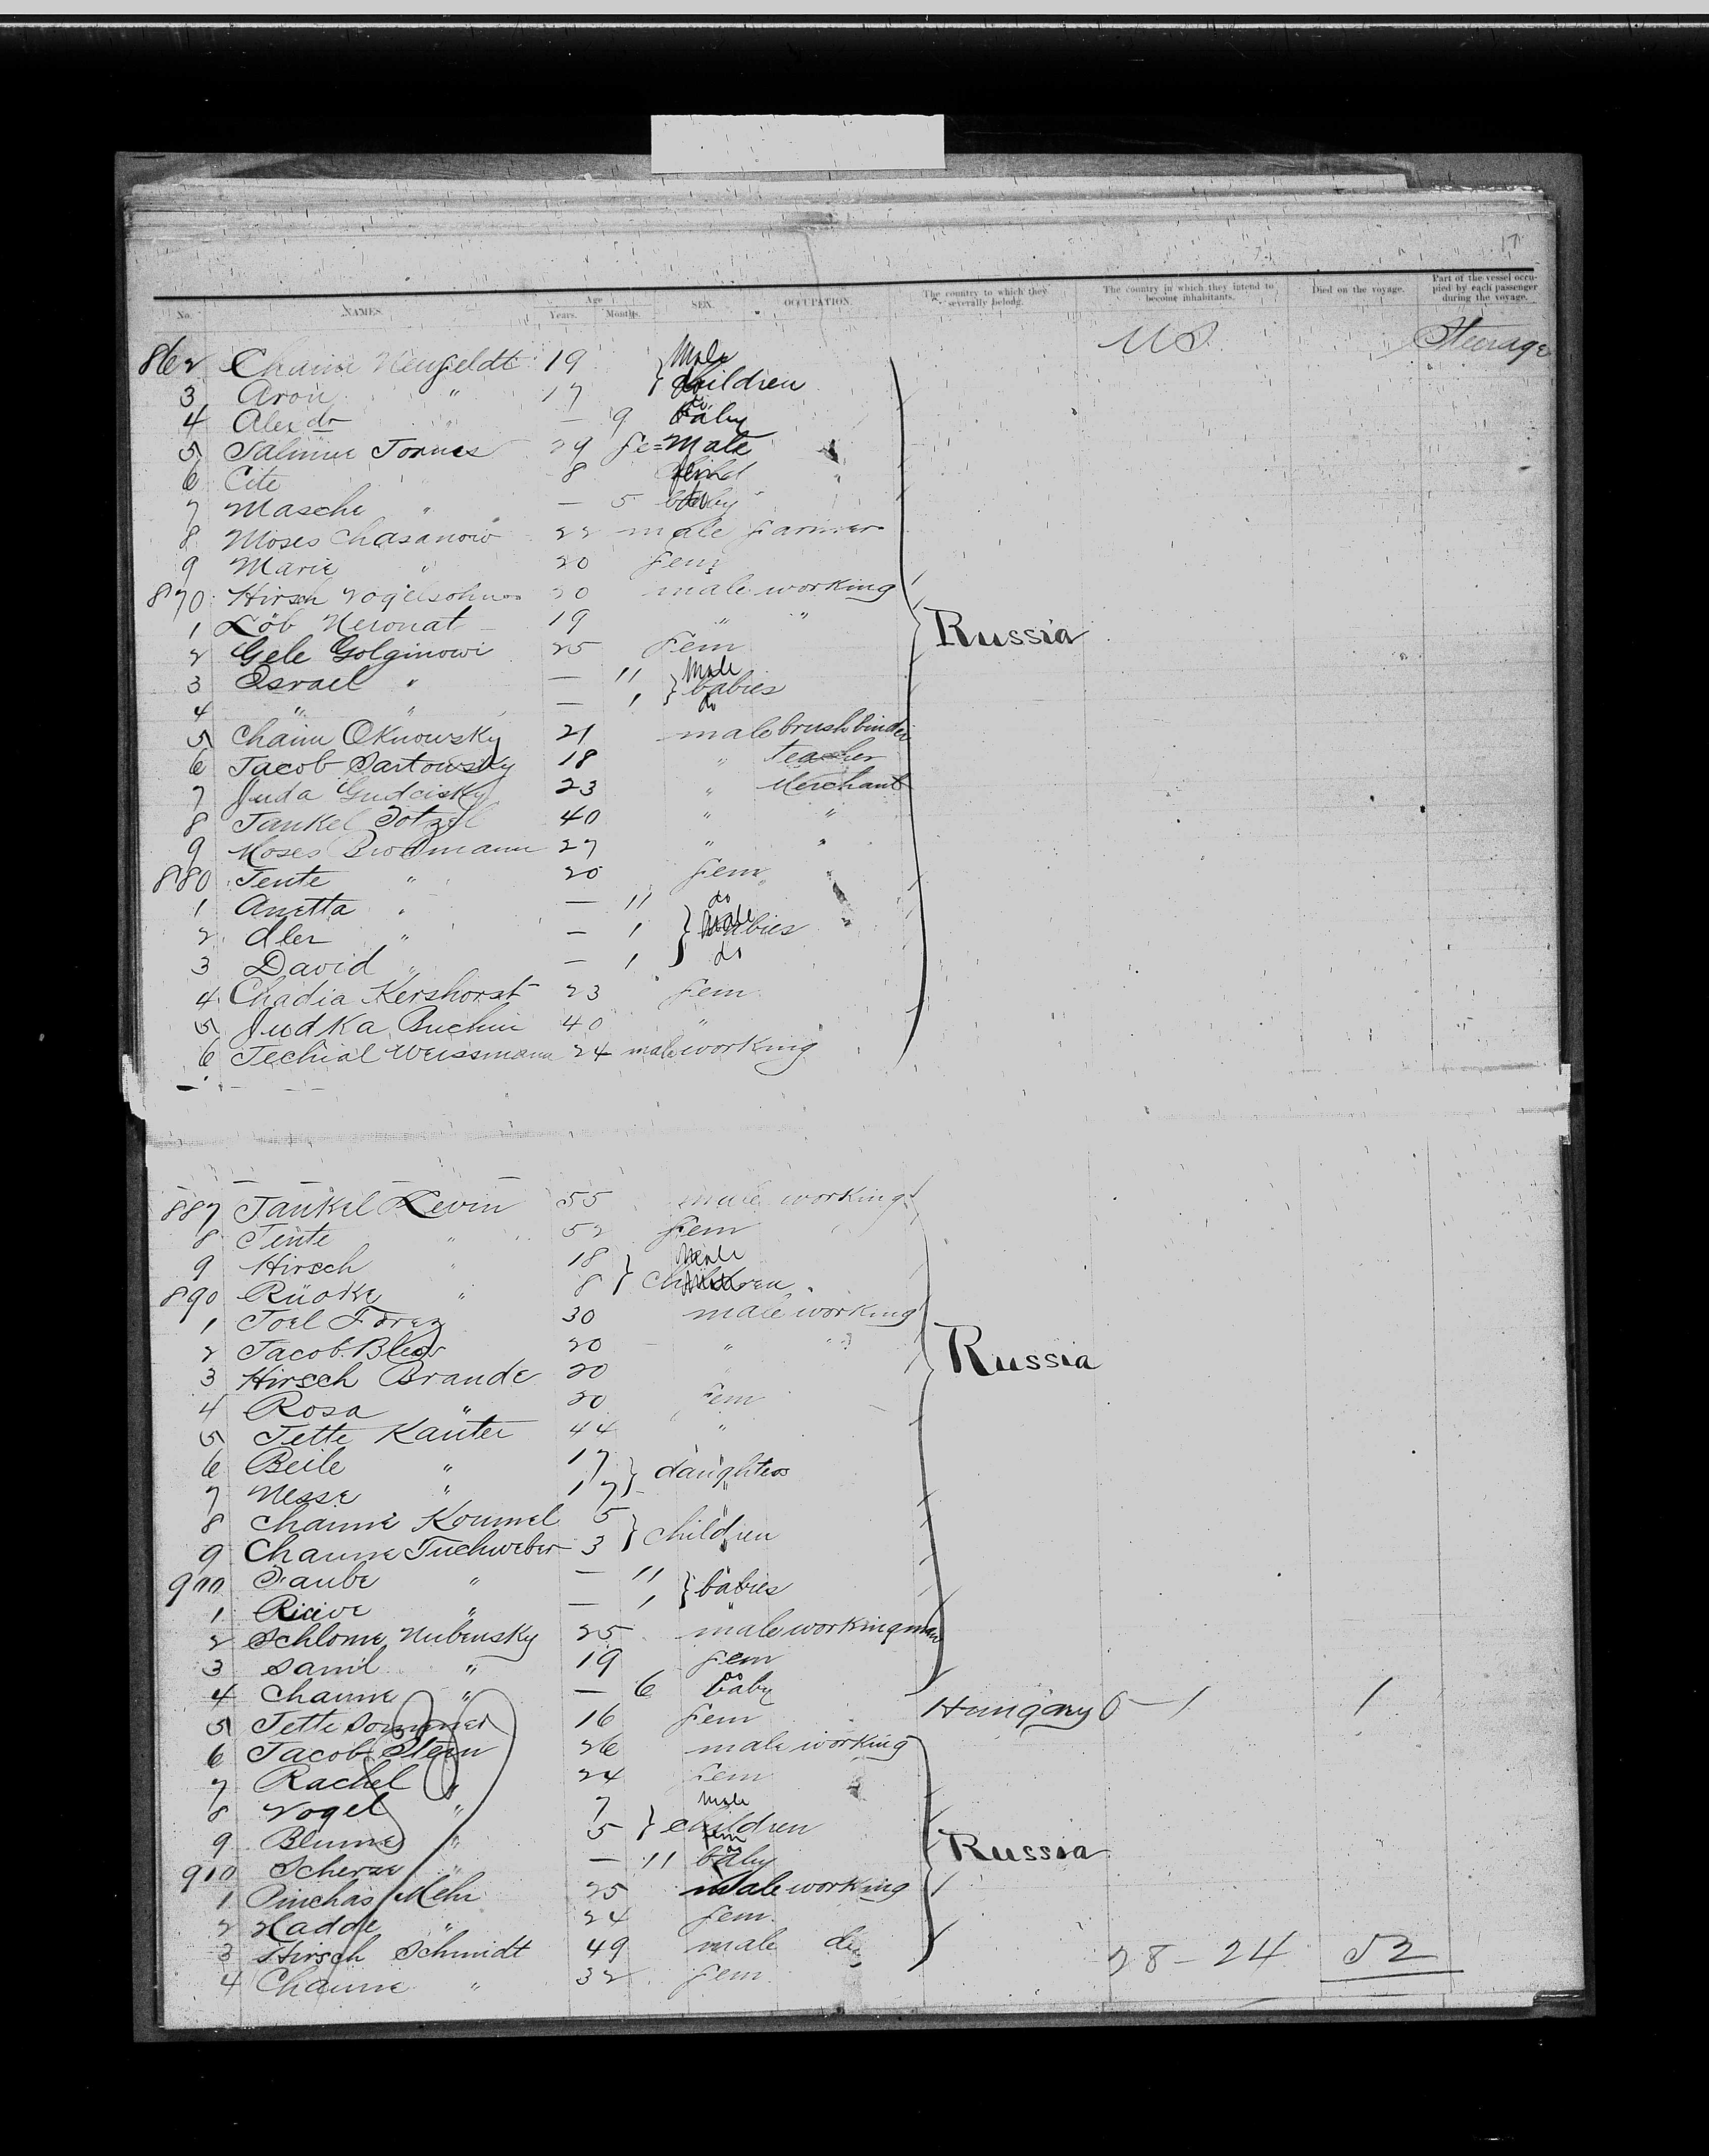 17
No. NAMES. Age Years. Months. SEX. OCCUPATION. The country to which they severally belong. The country in which they intend to become inhabitants. Died on the voyage. Part of the vessel occupied by each passenger during the voyage.
862 Chaim Neufeldt 19 Male US Steerage
3 Aron " 17 children
4 Alex do — 9 baby
5 Salmine Tornes 29 fe=Male
6 Cite 8
7 Masche " — 5 baby
8 Moses Chasanow 22 male farmer
9 Marie " 20 fem
870 Hirsch Vogelsohn 20 male working
1 Löb Neronat 19 " " Russia
2 Gele Golginowi 25 fem
3 Israel " — 11 Male babies
4 " " — " do
5 Chaim Oknowsky 21 male brushbinder
6 Jacob Sartowsky 18 " teacher
7 Juda Gudcisky 23 " Merchant
8 Jankel Totzel 40 " "
9 Moses Brodmann 27 " "
880 Tente " 20 fem
1 Anetta " — 11 do
2 Aler " — " Male babies
3 David " — " do
4 Chadia Kershorst 23 fem
5 Judka Buchin 40 "
6 Techial Weissmann 24 male working
887 Jankel Levin 55 male working
8 Tente " 52 fem
9 Hirsch " 18 Male
890 Rüoke " 8 children
1 Joel Forez 30 male working
2 Jacob 20 " " Russia
3 Hirsch Brande 20
4 Rosa " 20 fem
5 Jette Kanter 44 "
6 Beile " 17 daughters
7 Nesse " 17 "
8 Channe Kommel 5 children
9 Channe Tuchweber 3
900 Taube " — 11 babies
1 " — "
2 Schlome Nubensky 25 male workingman
3 Samil " 19 fem
4 Channe " — 6 do baby
5 Jette Sommer 16 fem Hungary 0—1 1
6 Jacob Stern 26 male working
7 Rachel " 24 fem
8 Vogel " 7 male
9 Blume " 5 children fem Russia
910 Scherze " — 11 do baby
1 Pinchas Mehr 25 male working
2 Hadde " 24 fem.
3 Hirsch Schmidt 49 male do 28-24 52
4 Channe " 32 fem.